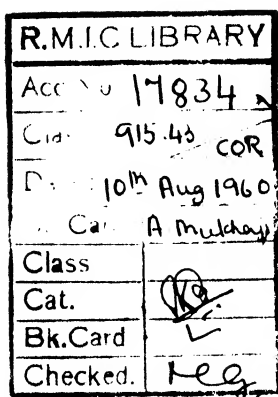 R.M.I.C LIBRARY
Acc No 17834
Cla 915.43 COR
D 10th Aug 1960
Ca A Mukherji
Class
Cat.
Bk.Card ✓
Checked.